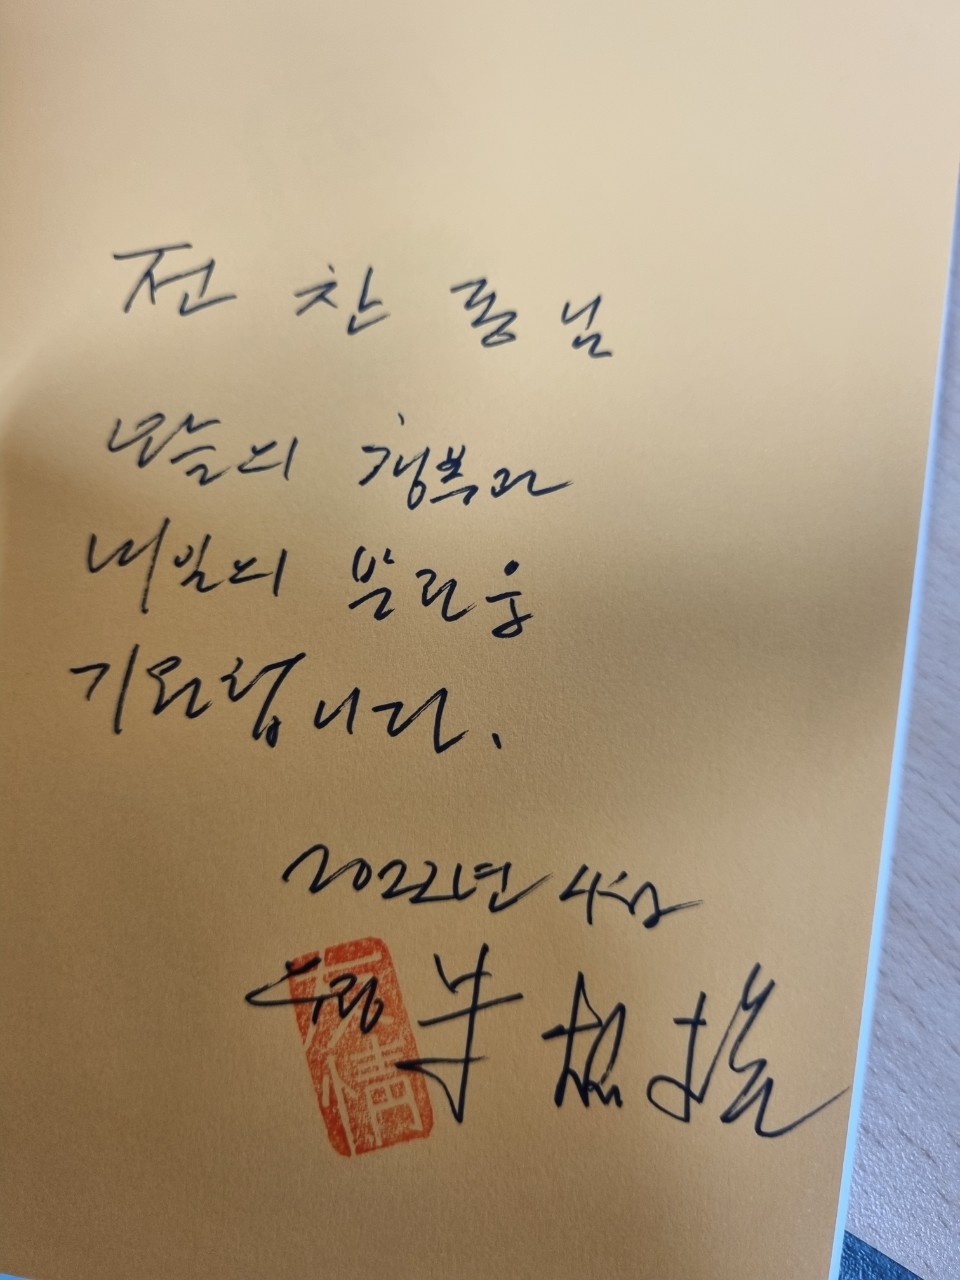 전 찬 종님
오늘의 행복과
내일의 발전을
기원합니다.
2022년 4월